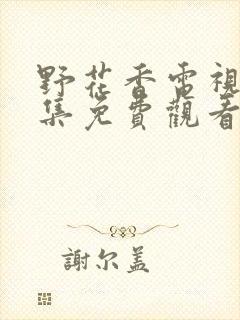 野花香電視
集免費觀看
謝尔盖